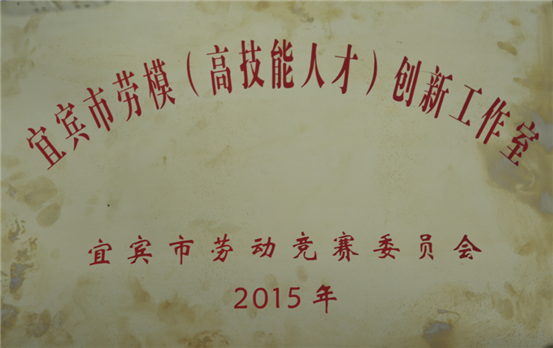 宜宾市劳模（高技能人才）创新工作室
宜宾市劳动竞赛委员会
2015年